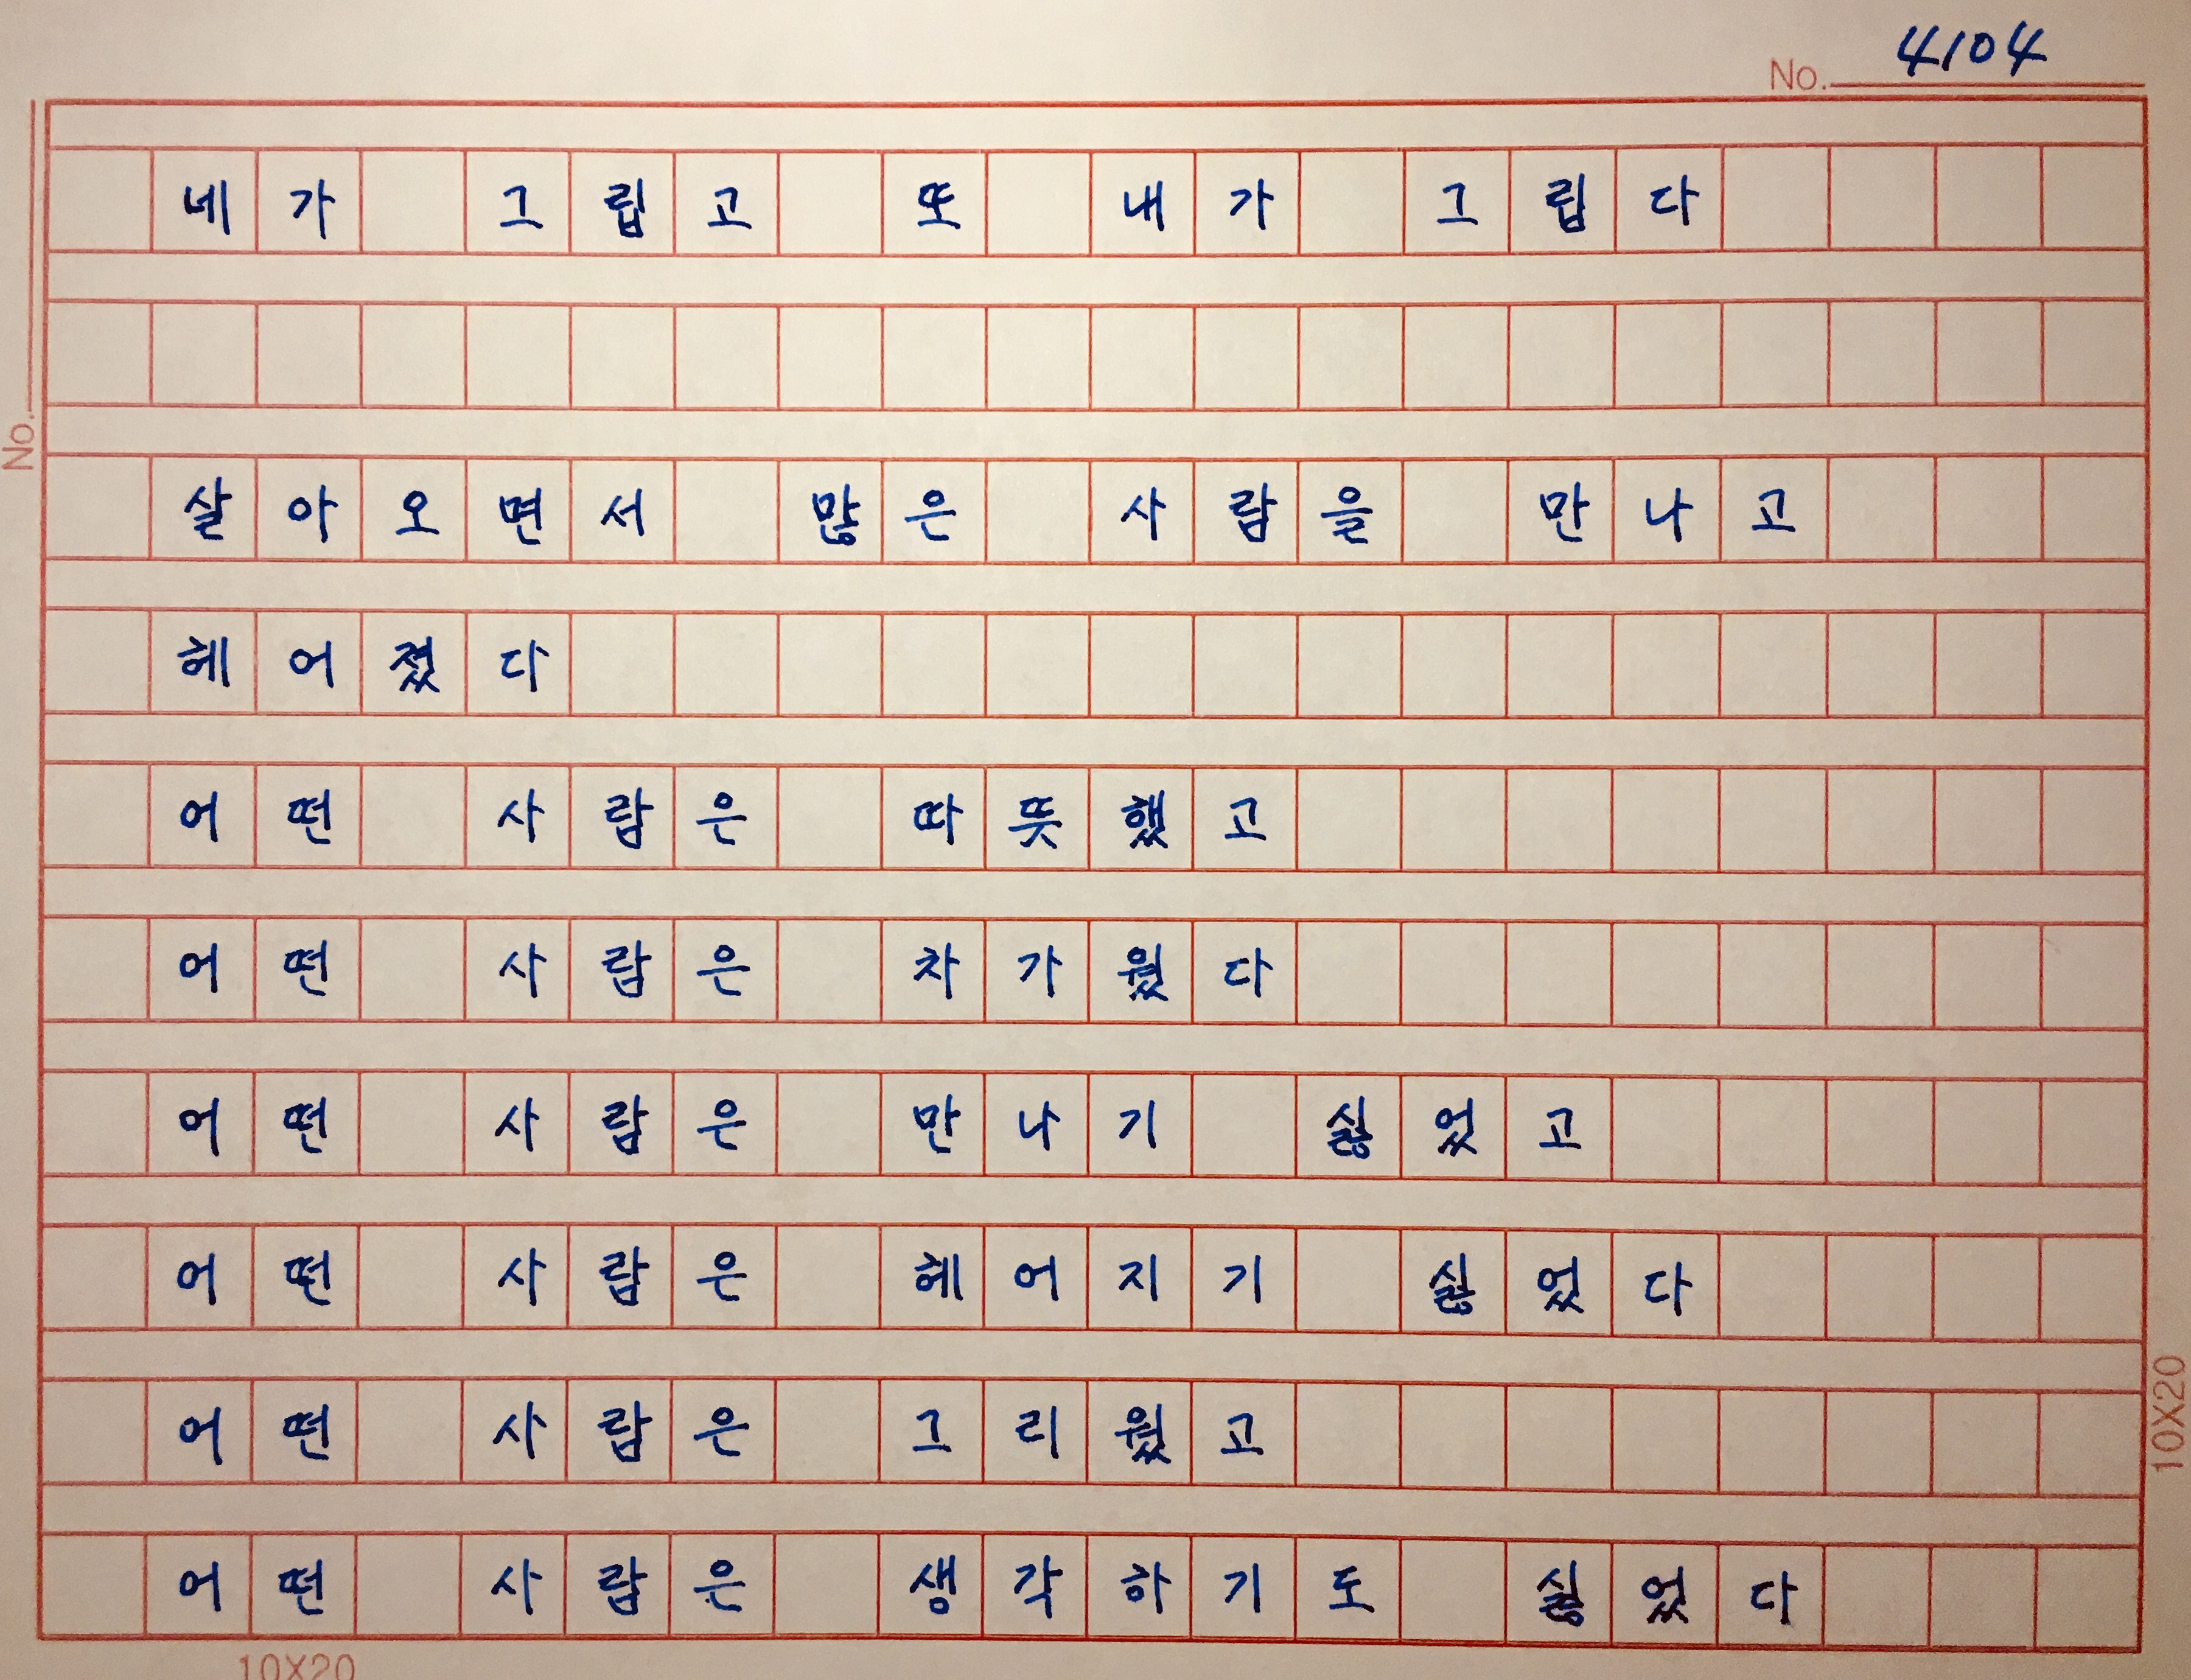 No. 4104
네가 그립고 또 내가 그립다
살아오면서 많은 사람을 만나고
헤어졌다
어떤 사람은 따뜻했고
어떤 사람은 차가웠다
어떤 사람은 만나기 싫었고
어떤 사람은 헤어지기 싫었다
어떤 사람은 그리웠고
어떤 사람은 생각하기도 싫었다
No.
10X20
10X20